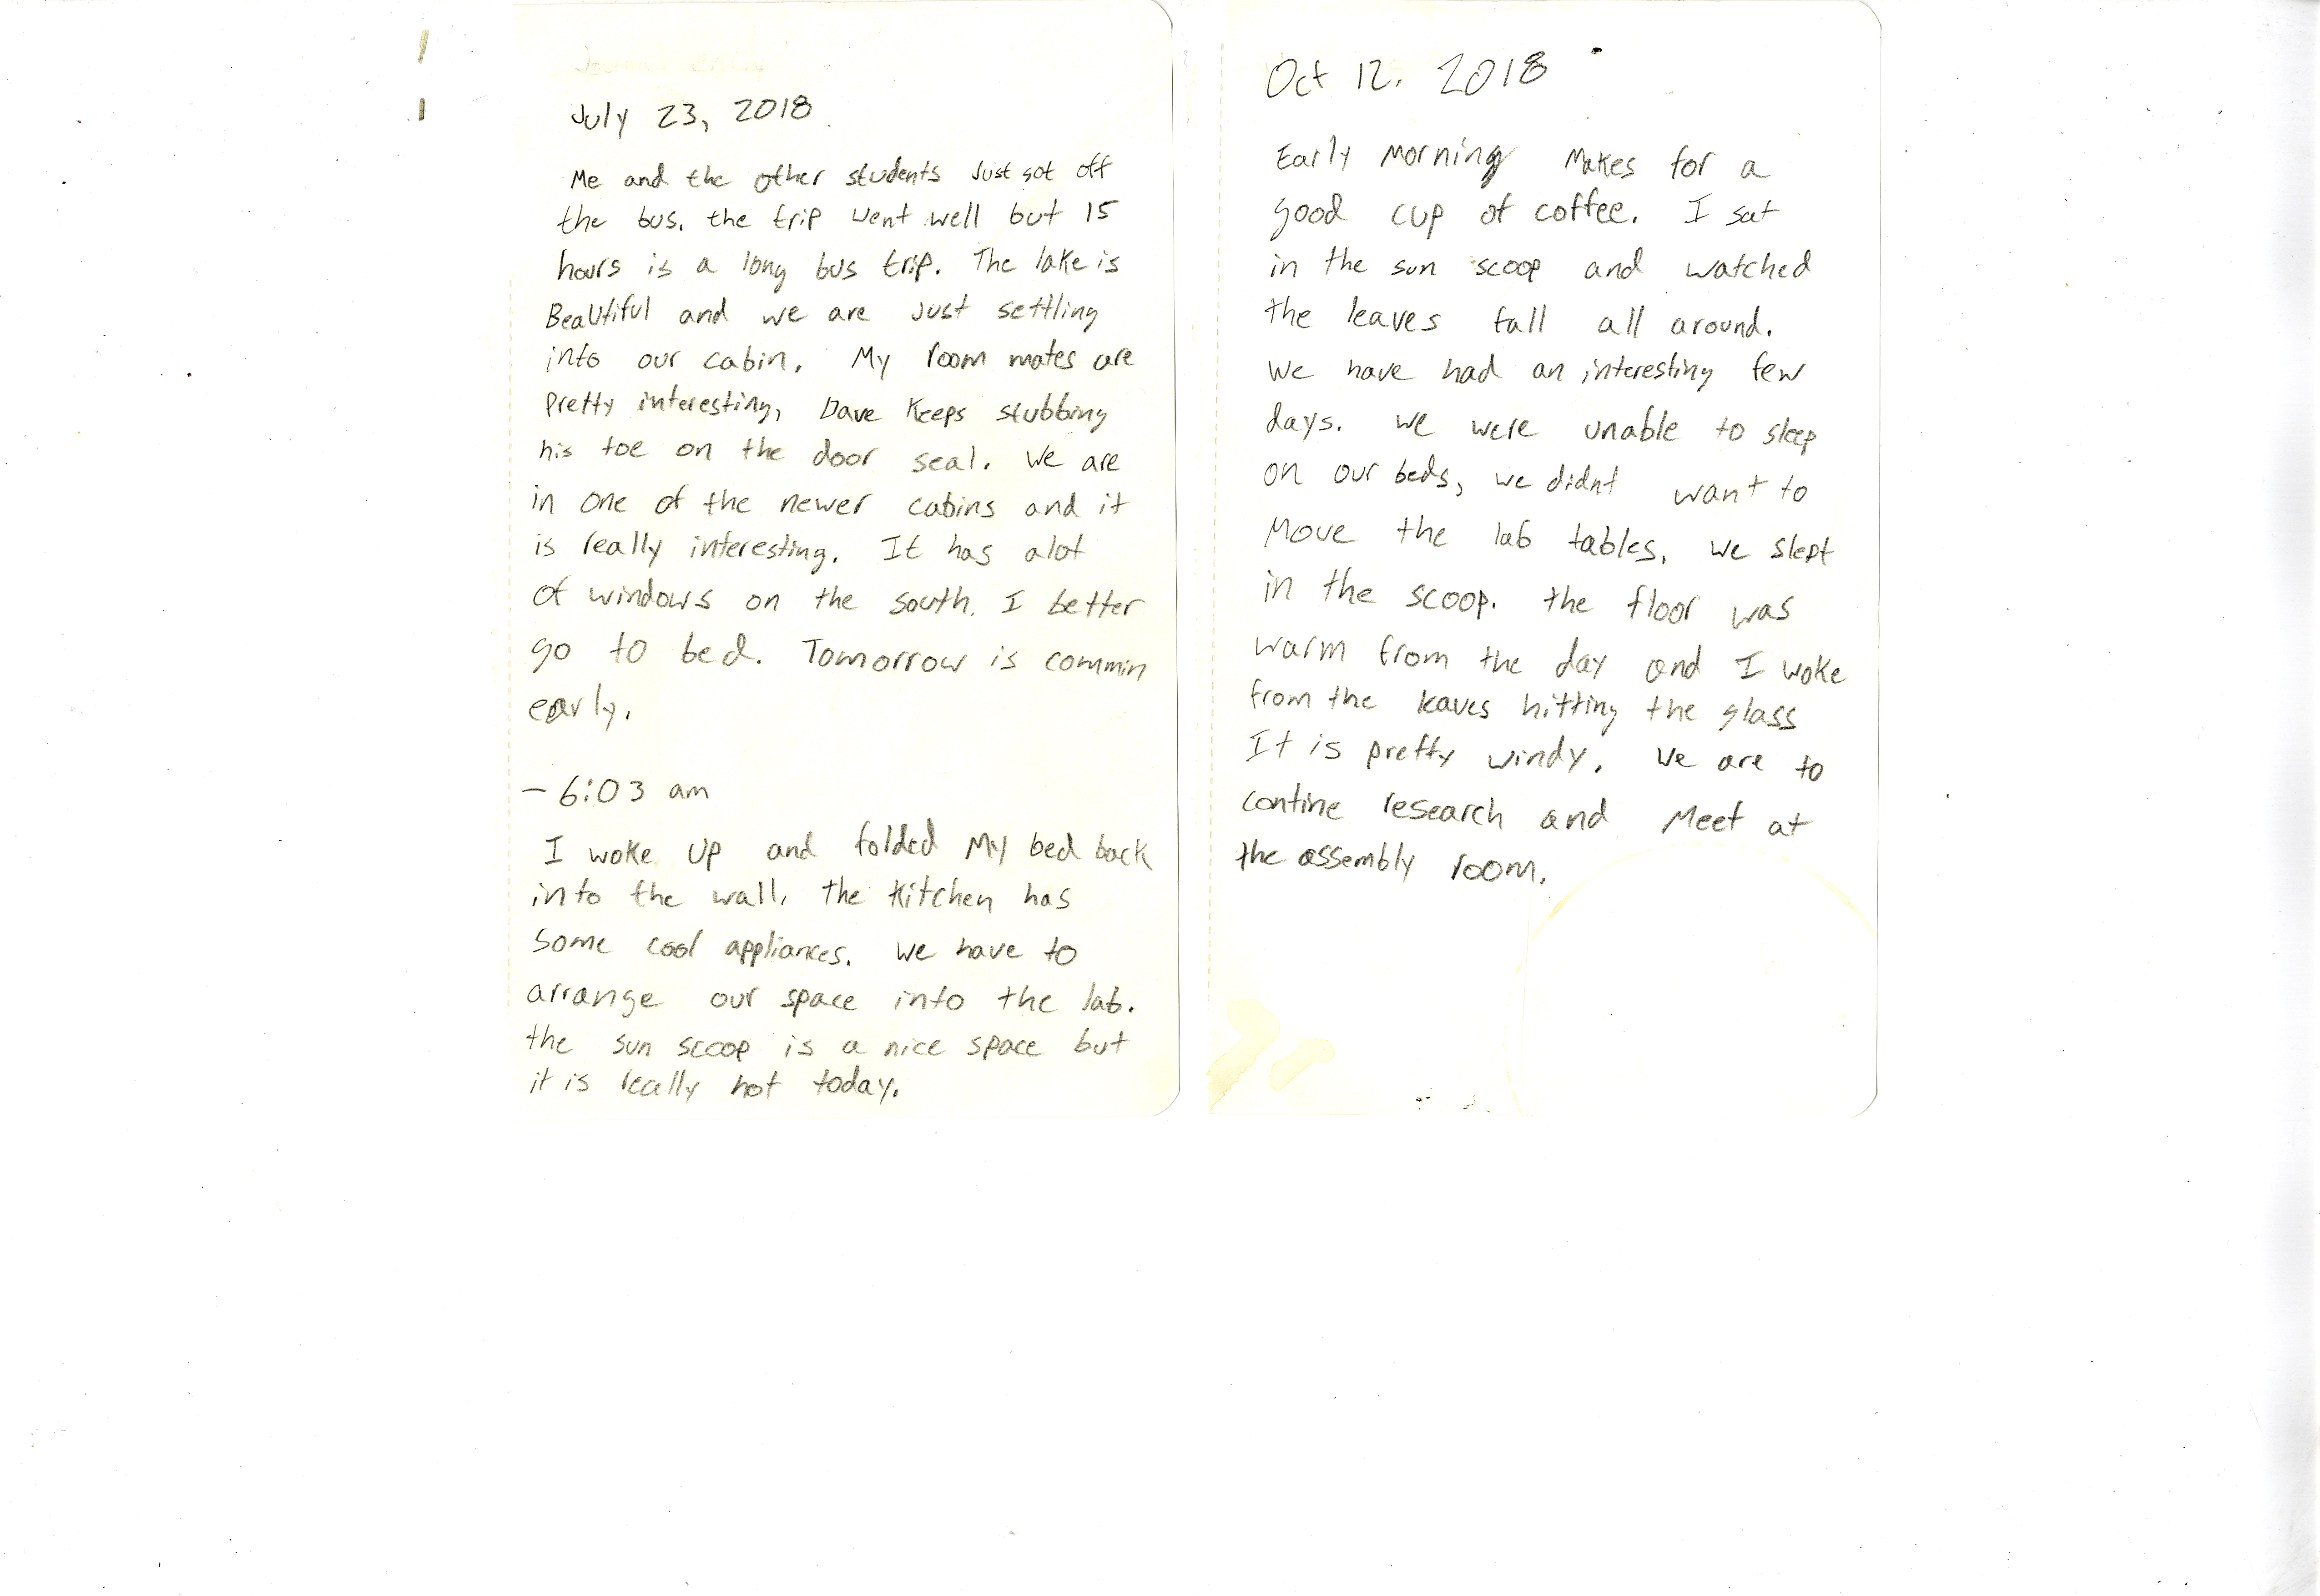 July 23, 2018
Me and the other students Just got off
the bus. the trip went well but 15
hours is a long bus trip. The lake is
Beautiful and we are Just settling
into our cabin. My room mates are
Pretty interesting, Dave Keeps stubbing
his toe on the door seal. We are
in one of the newer cabins and it
is really interesting. It has alot
of windows on the south. I better
go to bed. Tomorrow is commin
early.
- 6:03 am
I woke up and folded My bed back
into the wall. The Kitchen has
some cool appliances. We have to
arrange our space into the lab.
the sun scoop is a nice space but
it is really hot today.
Oct 12. 2018
Early Morning Makes for a
good cup of coffee. I sat
in the sun scoop and watched
the leaves fall all around.
We have had an interesting few
days. We were unable to sleep
on our beds, we didnt want to
Move the lab tables. We slept
in the scoop. the floor was
warm from the day and I woke
from the leaves hitting the glass
It is pretty windy. We are to
contine research and Meet at
the assembly room.